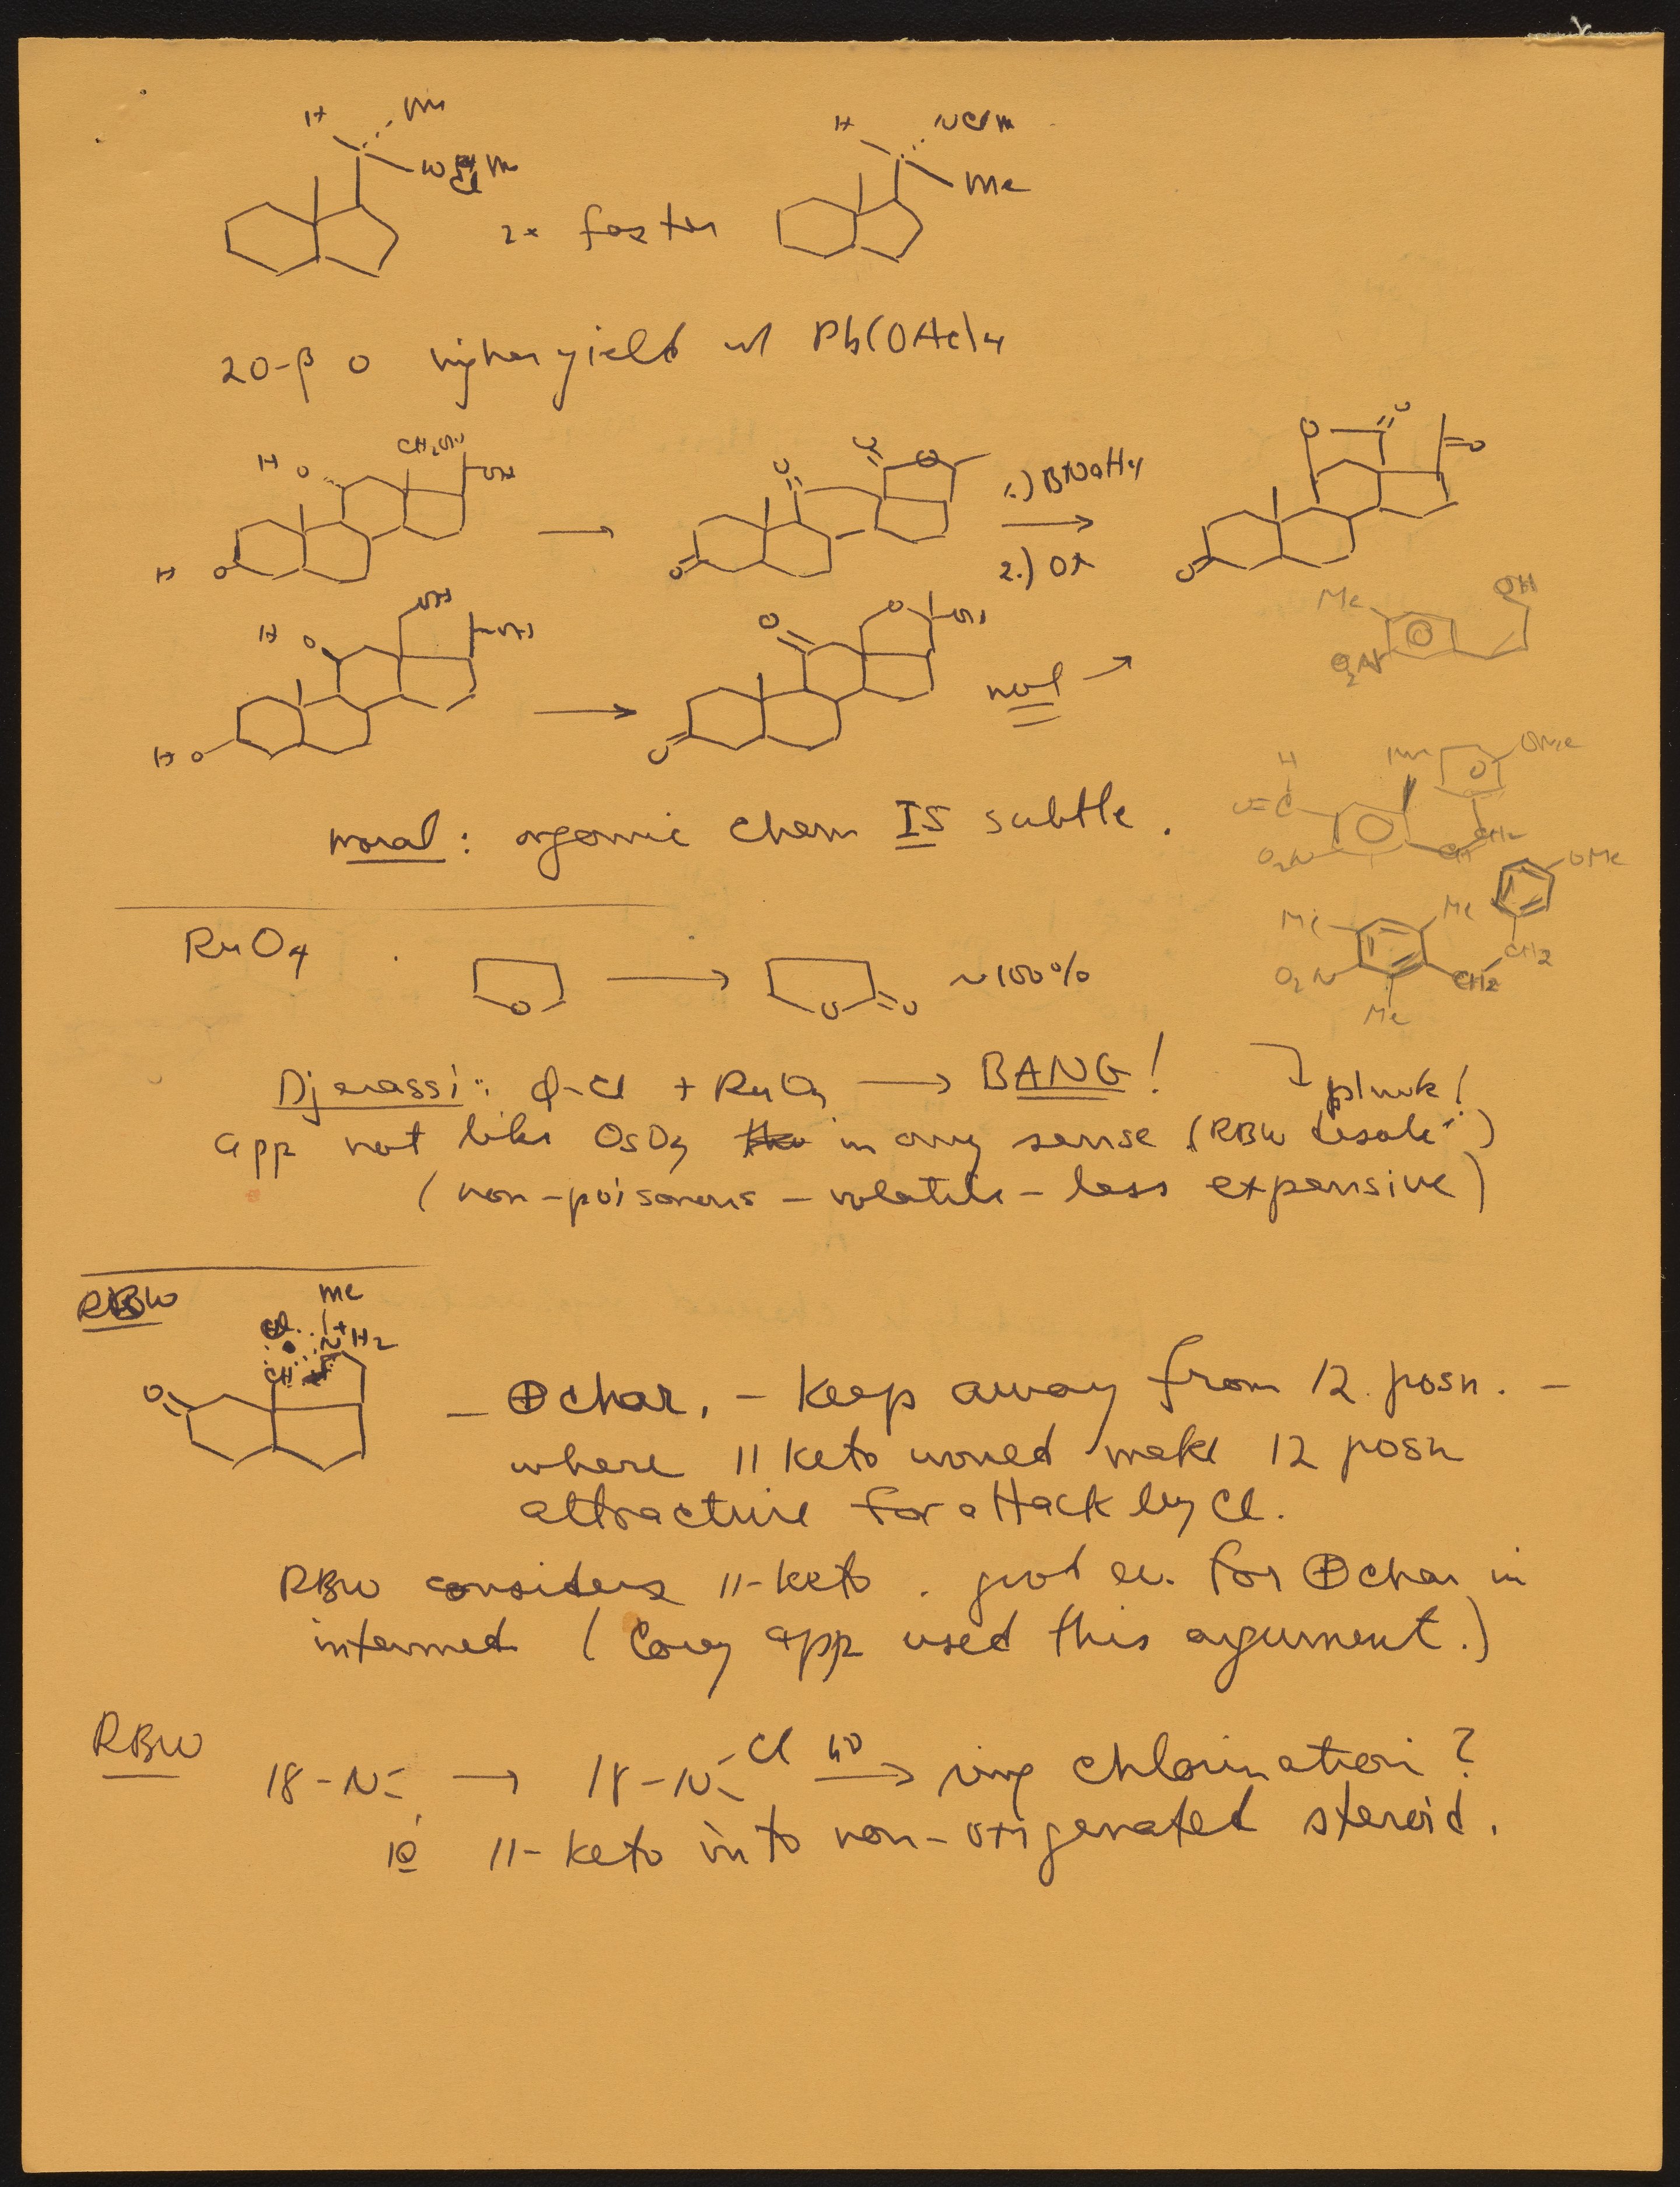 H Me H NClM
NClM Me
2x faster
20-β O higher yield w/ Pb(OAc)4
CH2OH
H O OH O O O O O
1.) B NaH4
2.) Ox
H O O O
OH OH
H O OH O O OH
not →
H O O
Me OH
O2N
moral: organic chem IS subtle.
H
O=C OMe
O2N CH CH2
OMe
Me Me
O2N CH2 CH2
Me
RuO4
O → O =O ~100%
Djerassi: φ-Cl + RuO4 → BANG!
plunk!
app not like OsO4 in any sense (RBW)
(non-poisonous - volatile - less expensive)
RBW
Me
Cl N+H2
CH
O
- ⊕ char. - keep away from 12 posn. -
where 11 keto would make 12 posn
attractive for attack by Cl.
RBW considers 11-keto. good ev. for ⊕ char in
intermed (Corey app used this argument.)
RBW
18-N → 18-N Cl hν → ring chlorination?
ie 11-keto into non-oxigenated steroid.